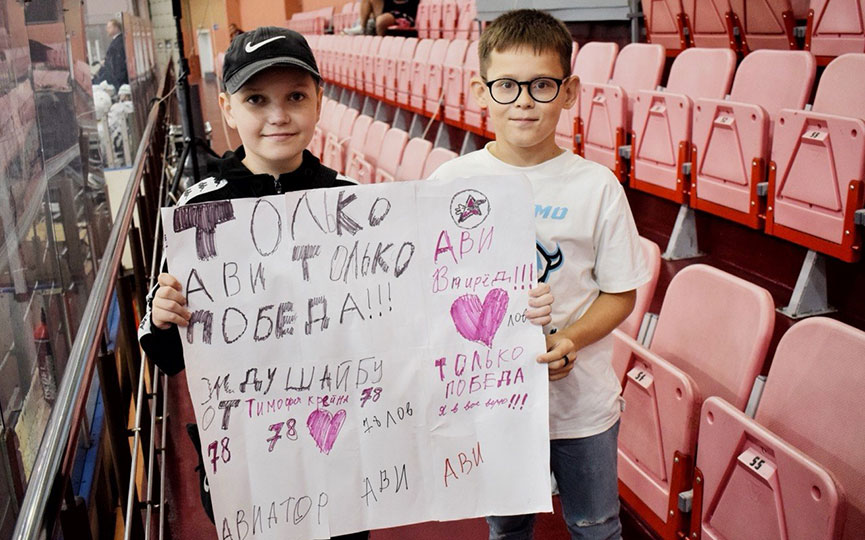 ТОЛЬКО
АВИ ТОЛЬКО
ПОБЕДА!!!
ЖДУ ШАЙБУ
ОТ Тимофея Крайна 78
78 78 78 ЛОВ
АВИАТОР АВИ АВИ
АВИ
Вперёд!!!
ЛОВ
ТОЛЬКО
ПОБЕДА
Я в вас верю!!!
51
55